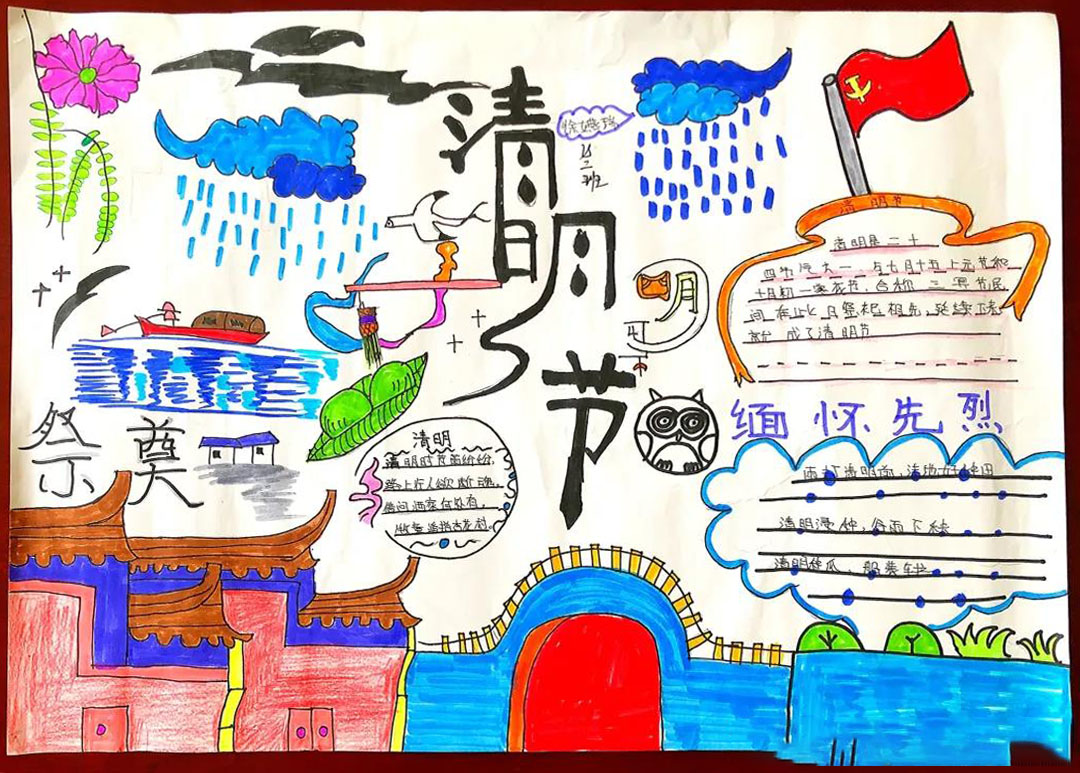 清明节
二班
清明节
清明是二十
四节气之一,与七月十五上元节和
十月初一寒衣节,合称三冥节民
间在此日祭祀祖先,延续下来
就成了清明节
明
缅怀先烈
祭奠
清明
清明时节雨纷纷,
路上行人欲断魂。
借问酒家何处有,
牧童遥指杏花村
雨打清明前,好种田
清明浸种,谷雨下秧
清明种瓜,船装车拉